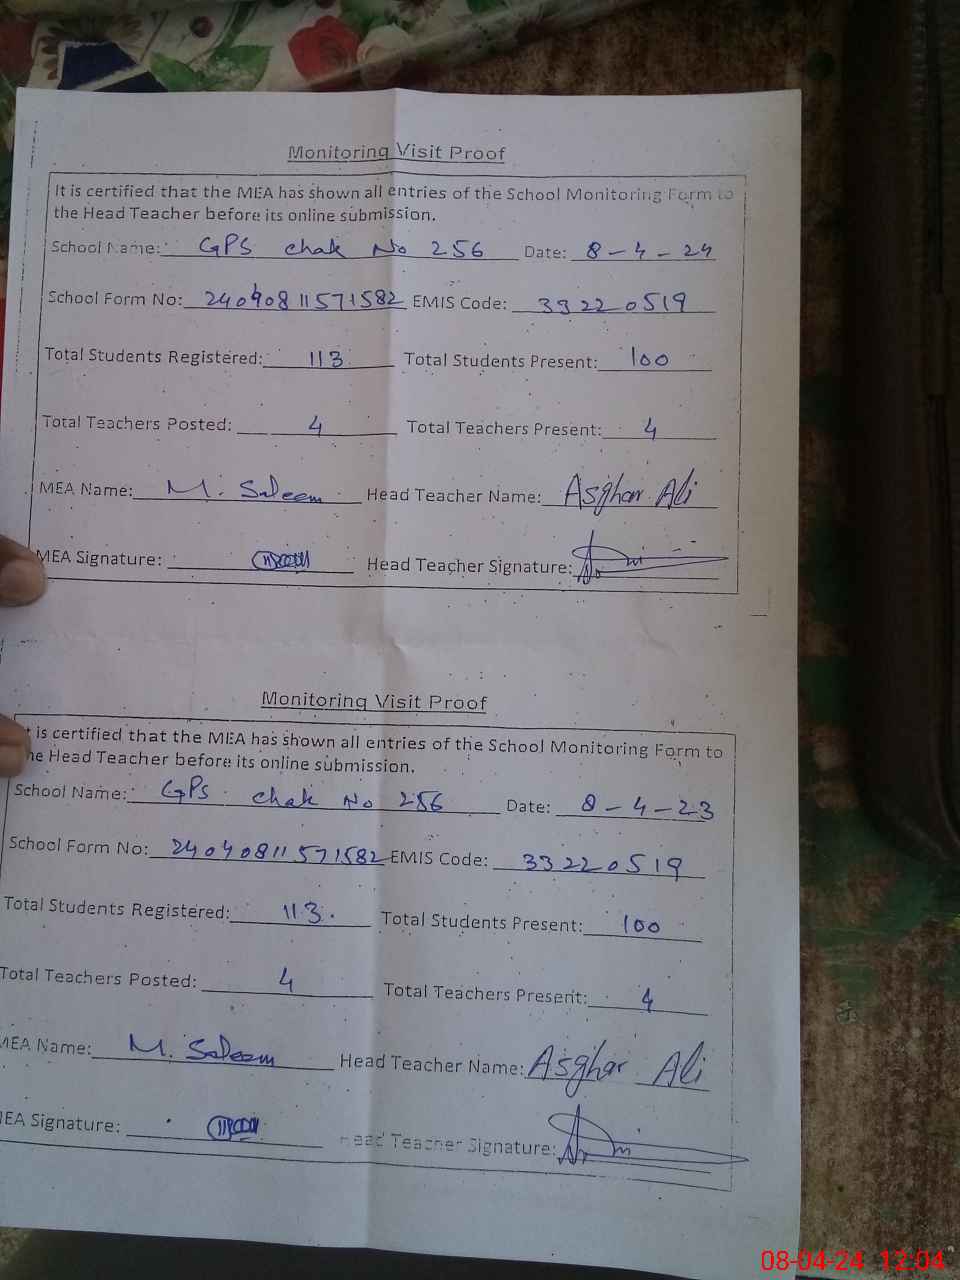 Monitoring Visit Proof
It is certified that the MEA has shown all entries of the School Monitoring Form to
the Head Teacher before its online submission.
School Name: GPS chak No 256 Date: 8-4-24
School Form No: 24040811571582 EMIS Code: 33220519
Total Students Registered: 113 Total Students Present: 100
Total Teachers Posted: 4 Total Teachers Present: 4
MEA Name: M. Saleem Head Teacher Name: Asghar Ali
MEA Signature: Head Teacher Signature:
Monitoring Visit Proof
It is certified that the MEA has shown all entries of the School Monitoring Form to
he Head Teacher before its online submission.
School Name: GPS chak No 256 Date: 8-4-23
School Form No: 24040811571582 EMIS Code: 33220519
Total Students Registered: 113. Total Students Present: 100
Total Teachers Posted: 4 Total Teachers Present: 4
MEA Name: M. Saleem Head Teacher Name: Asghar Ali
MEA Signature: Head Teacher Signature:
08-04-24 12:04